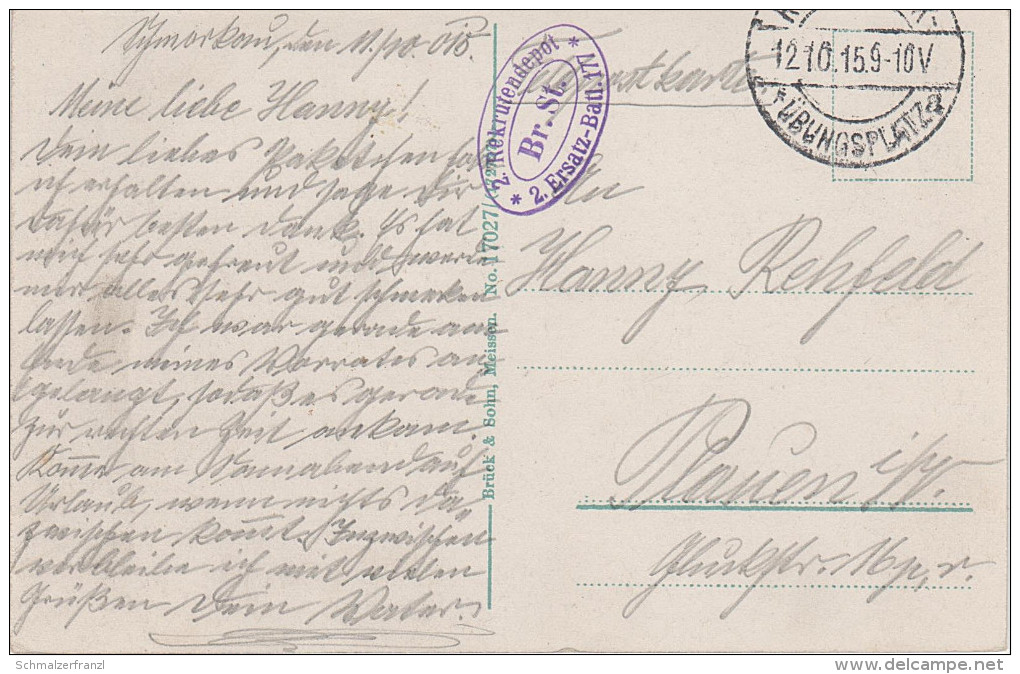 Schmorkau, den 11./10. 015.
Meine liebe Hanny!
Dein liebes Paketchen hab
ich erhalten und sage Dir
dafür besten Dank. Es hat
mich sehr gefreut und werde
mir alles sehr gut schmecken
lassen. Ich war gerade am
Ende meines Vorrates an-
gelangt, sodaß es gerade
zur rechten Zeit ankam.
Komme am Sonnabend auf
Urlaub, wenn nichts da-
zwischen kommt. Inzwischen
verbleibe ich mit vielen
Grüßen Dein Vater.
2. Rekrutendepot
Br. St.
* 2. Ersatz-Batl.
Brück & Sohn, Meissen. No. 17027/
Feldpostkarte
12.10.15.9-10V
ÜBUNGSPLATZ
An
Hanny Rehfeld
Plauen i/V.
Gluckstr.
Schmalzerfranzl
delcampe.net